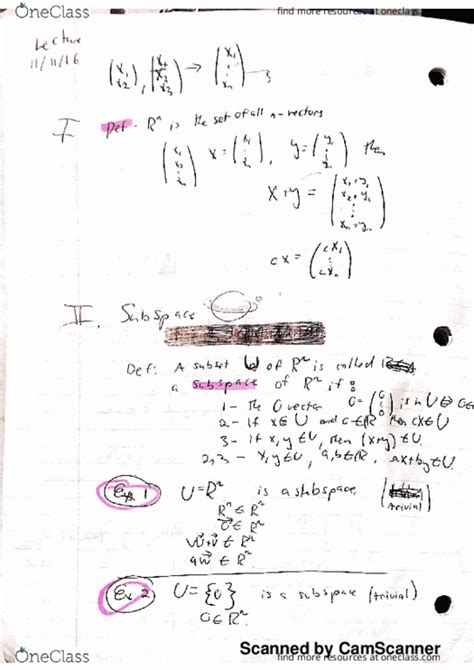 OneClass
find more resources at oneclass.com
Lecture
11/11/16
(x₁ x₂), (x₁ x₂ x₃) → (x₁ ⋮ xₙ)
I
Def - Rⁿ is the set of all n-vectors
(x₁ x₂ ⋮ xₙ) x = (x₁ ⋮ xₙ), y = (y₁ ⋮ yₙ) then
x+y = (x₁+y₁ x₂+y₂ ⋮ xₙ+yₙ)
cx = (cx₁ ⋮ cxₙ)
II. Subspace
Def: A subset U of Rⁿ is called
a subspace of Rⁿ if:
1 - the 0 vector 0 = (0 ⋮ 0) is in U
2 - if x∈U and c∈R then cx∈U
3 - if x,y∈U, then (x+y)∈U.
2,3 - x,y∈U, a,b∈R, ax+by∈U
Ex. 1 U=Rⁿ is a subspace (trivial)
Rⁿ∈Rⁿ
0⃗∈Rⁿ
w⃗+v⃗∈Rⁿ
aw⃗∈Rⁿ
Ex. 2 U={0} is a subspace (trivial)
0∈Rⁿ.
Scanned by CamScanner
OneClass
find more resources at oneclass.com